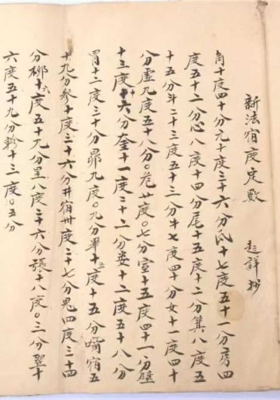 新法宿度定 詳抄
角十度四十分亢十度三十六分氐十七度五十一分房四
度五十一分心八度十四分尾十五度十二分箕八度五
十五分斗二十三度五十三分牛七度四十分女十一度四十
分虛九度五十八分危廿度〇七分室十五度四十一分壁
十三度十六分奎十一度二十一分婁十二度五十八分
胃十二度三十分昴九度〇九分畢十三度十五分觜宿五
十九分參十度三十六分井宿卅度二十七分鬼四度三十四
分柳十六度五十九分星八度二十六分張十八度〇三分翼十
六度五十九分軫十三度〇五分